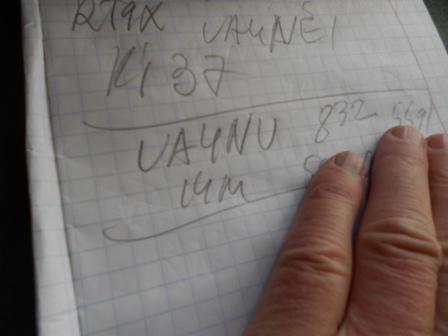 RT9X UA4NE
KI 37
UA4NU 832 559
14M